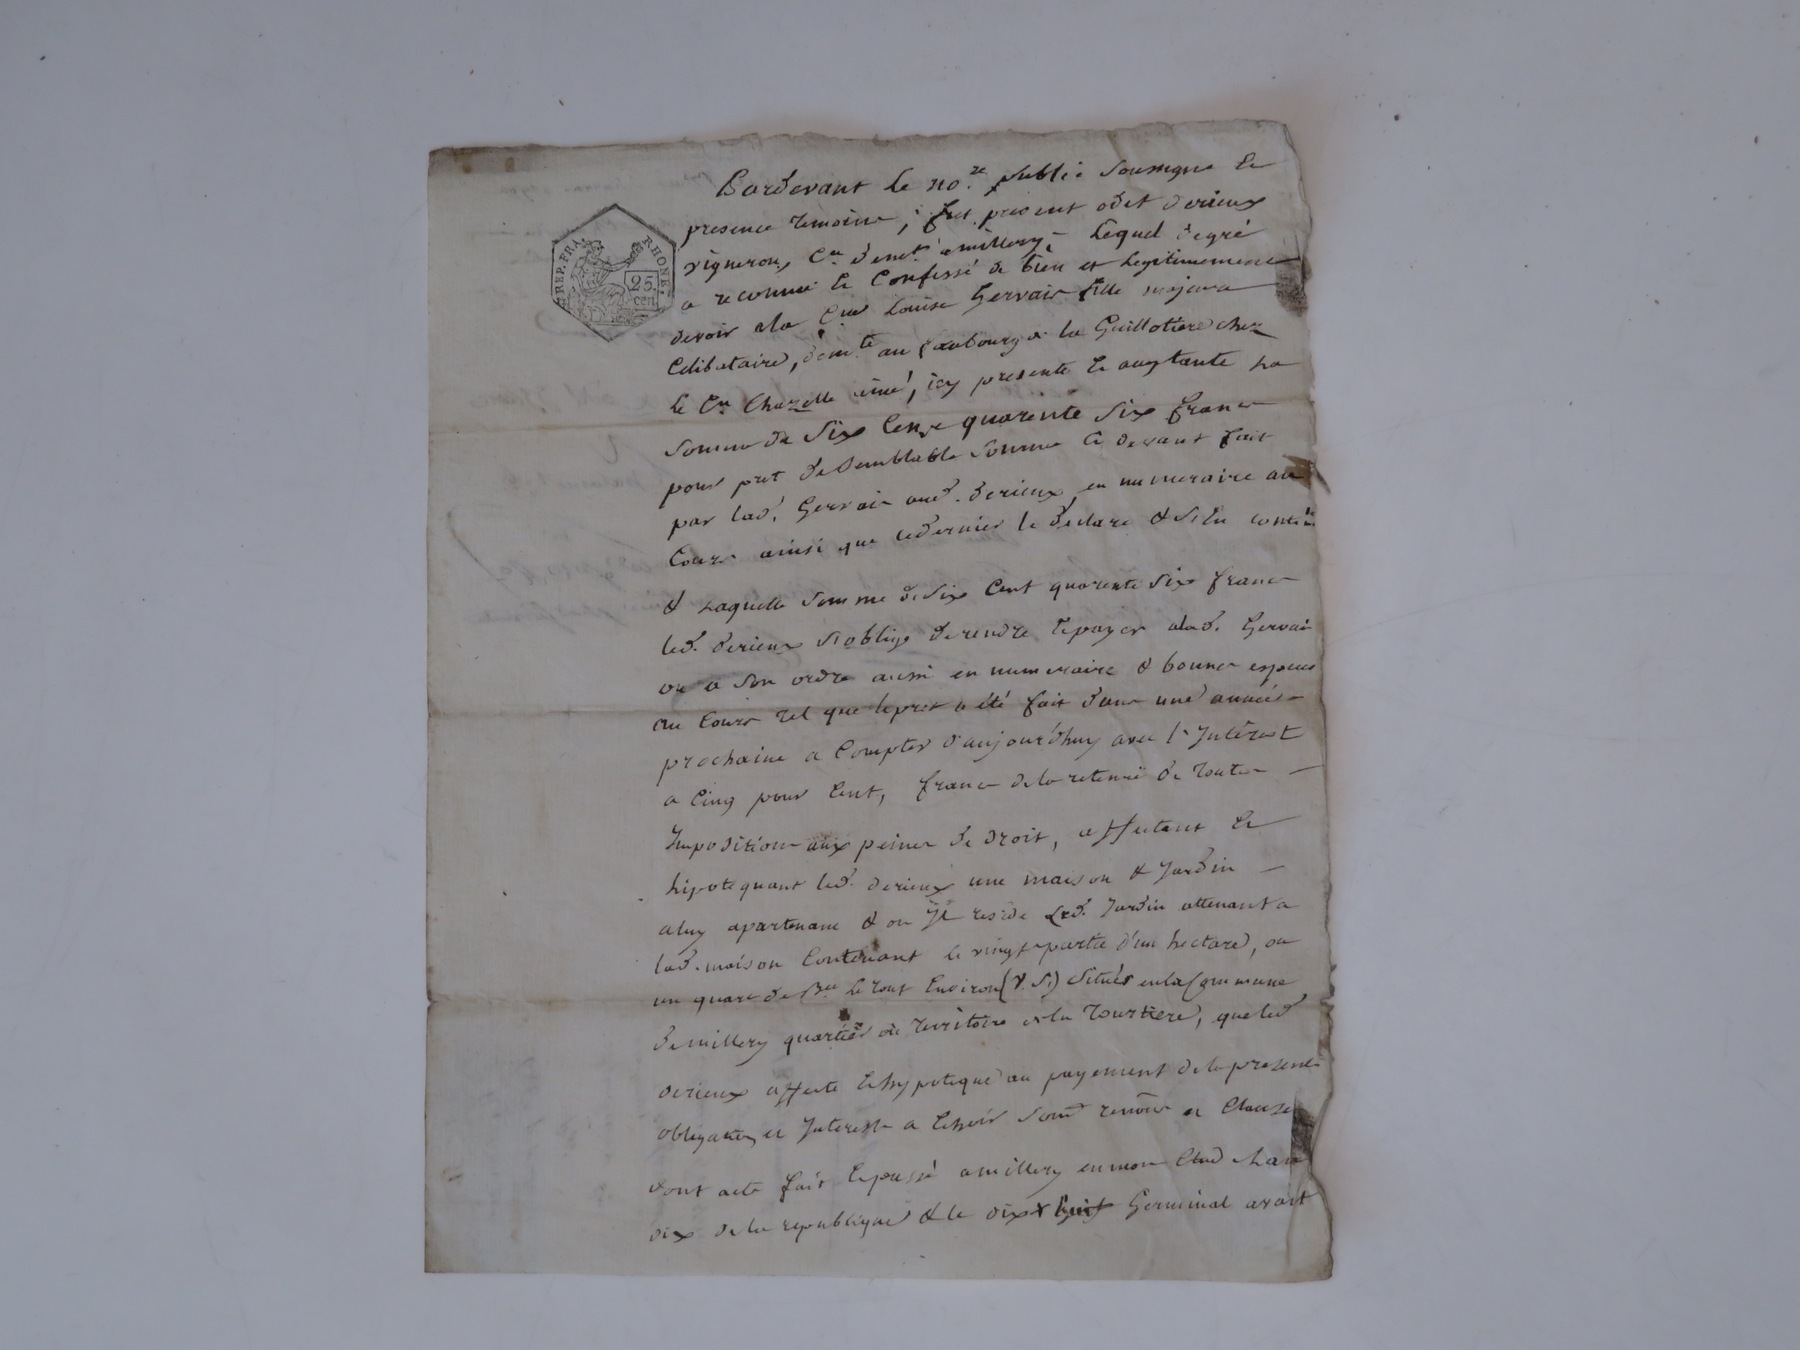 REP. FRA. RHONE.
25
cen.
Pardevant le no.re public soussigne Et
presence temoins, fut present odet derieux
vigneron, Cen demt amillery, Lequel degré
a reconnu Et Confessé de bien et Legitimement
devoir ala Cne Louise Gervais fille majeure
Celibataire, demte au fauxbourg de la Guillotiere chez
le Cn Chazelle ainé, icy presente Et acceptante La
somme de Six Cens quarente Six francs
pour pret de Semblable Somme Ci devant fait
par lad. Gervais aud. derieux, en numeraire au
Cours ainsi que cedernier le declare & S'En contente
& Laquelle Somme de Six Cent quarente Six francs
led. derieux s'oblige de rendre Et payer alad. Gervais
ou a Son ordre aussi en numeraire & bonnes especes
au Cours Tel que le pret a été fait dans une année
prochaine a Compter d'aujourd'huy avec l'Intérest
a Cinq pour Cent, franc de la retenuë de Toutes
Impositions aux peines de droit, affectant Et
hipotequant led. derieux une maison & Jardin
aluy apartenant & ou Jl reside Led. Jardin attenant a
lad. maison Contenant la vingt partie d'un hectare, ou
un quart de Bée Le tout Environ (V. S.) Situés en la Commune
de millery quartier ou Territoire de la Tourtiere, que led
derieux affecte Et hypoteque au payement de la presente
obligation et Interests a Lesvoir Soum renon et Clauses
dont acte fait Et passé amillery en mon Etud Lan
dix de la republique & le dix huit Germinal avant